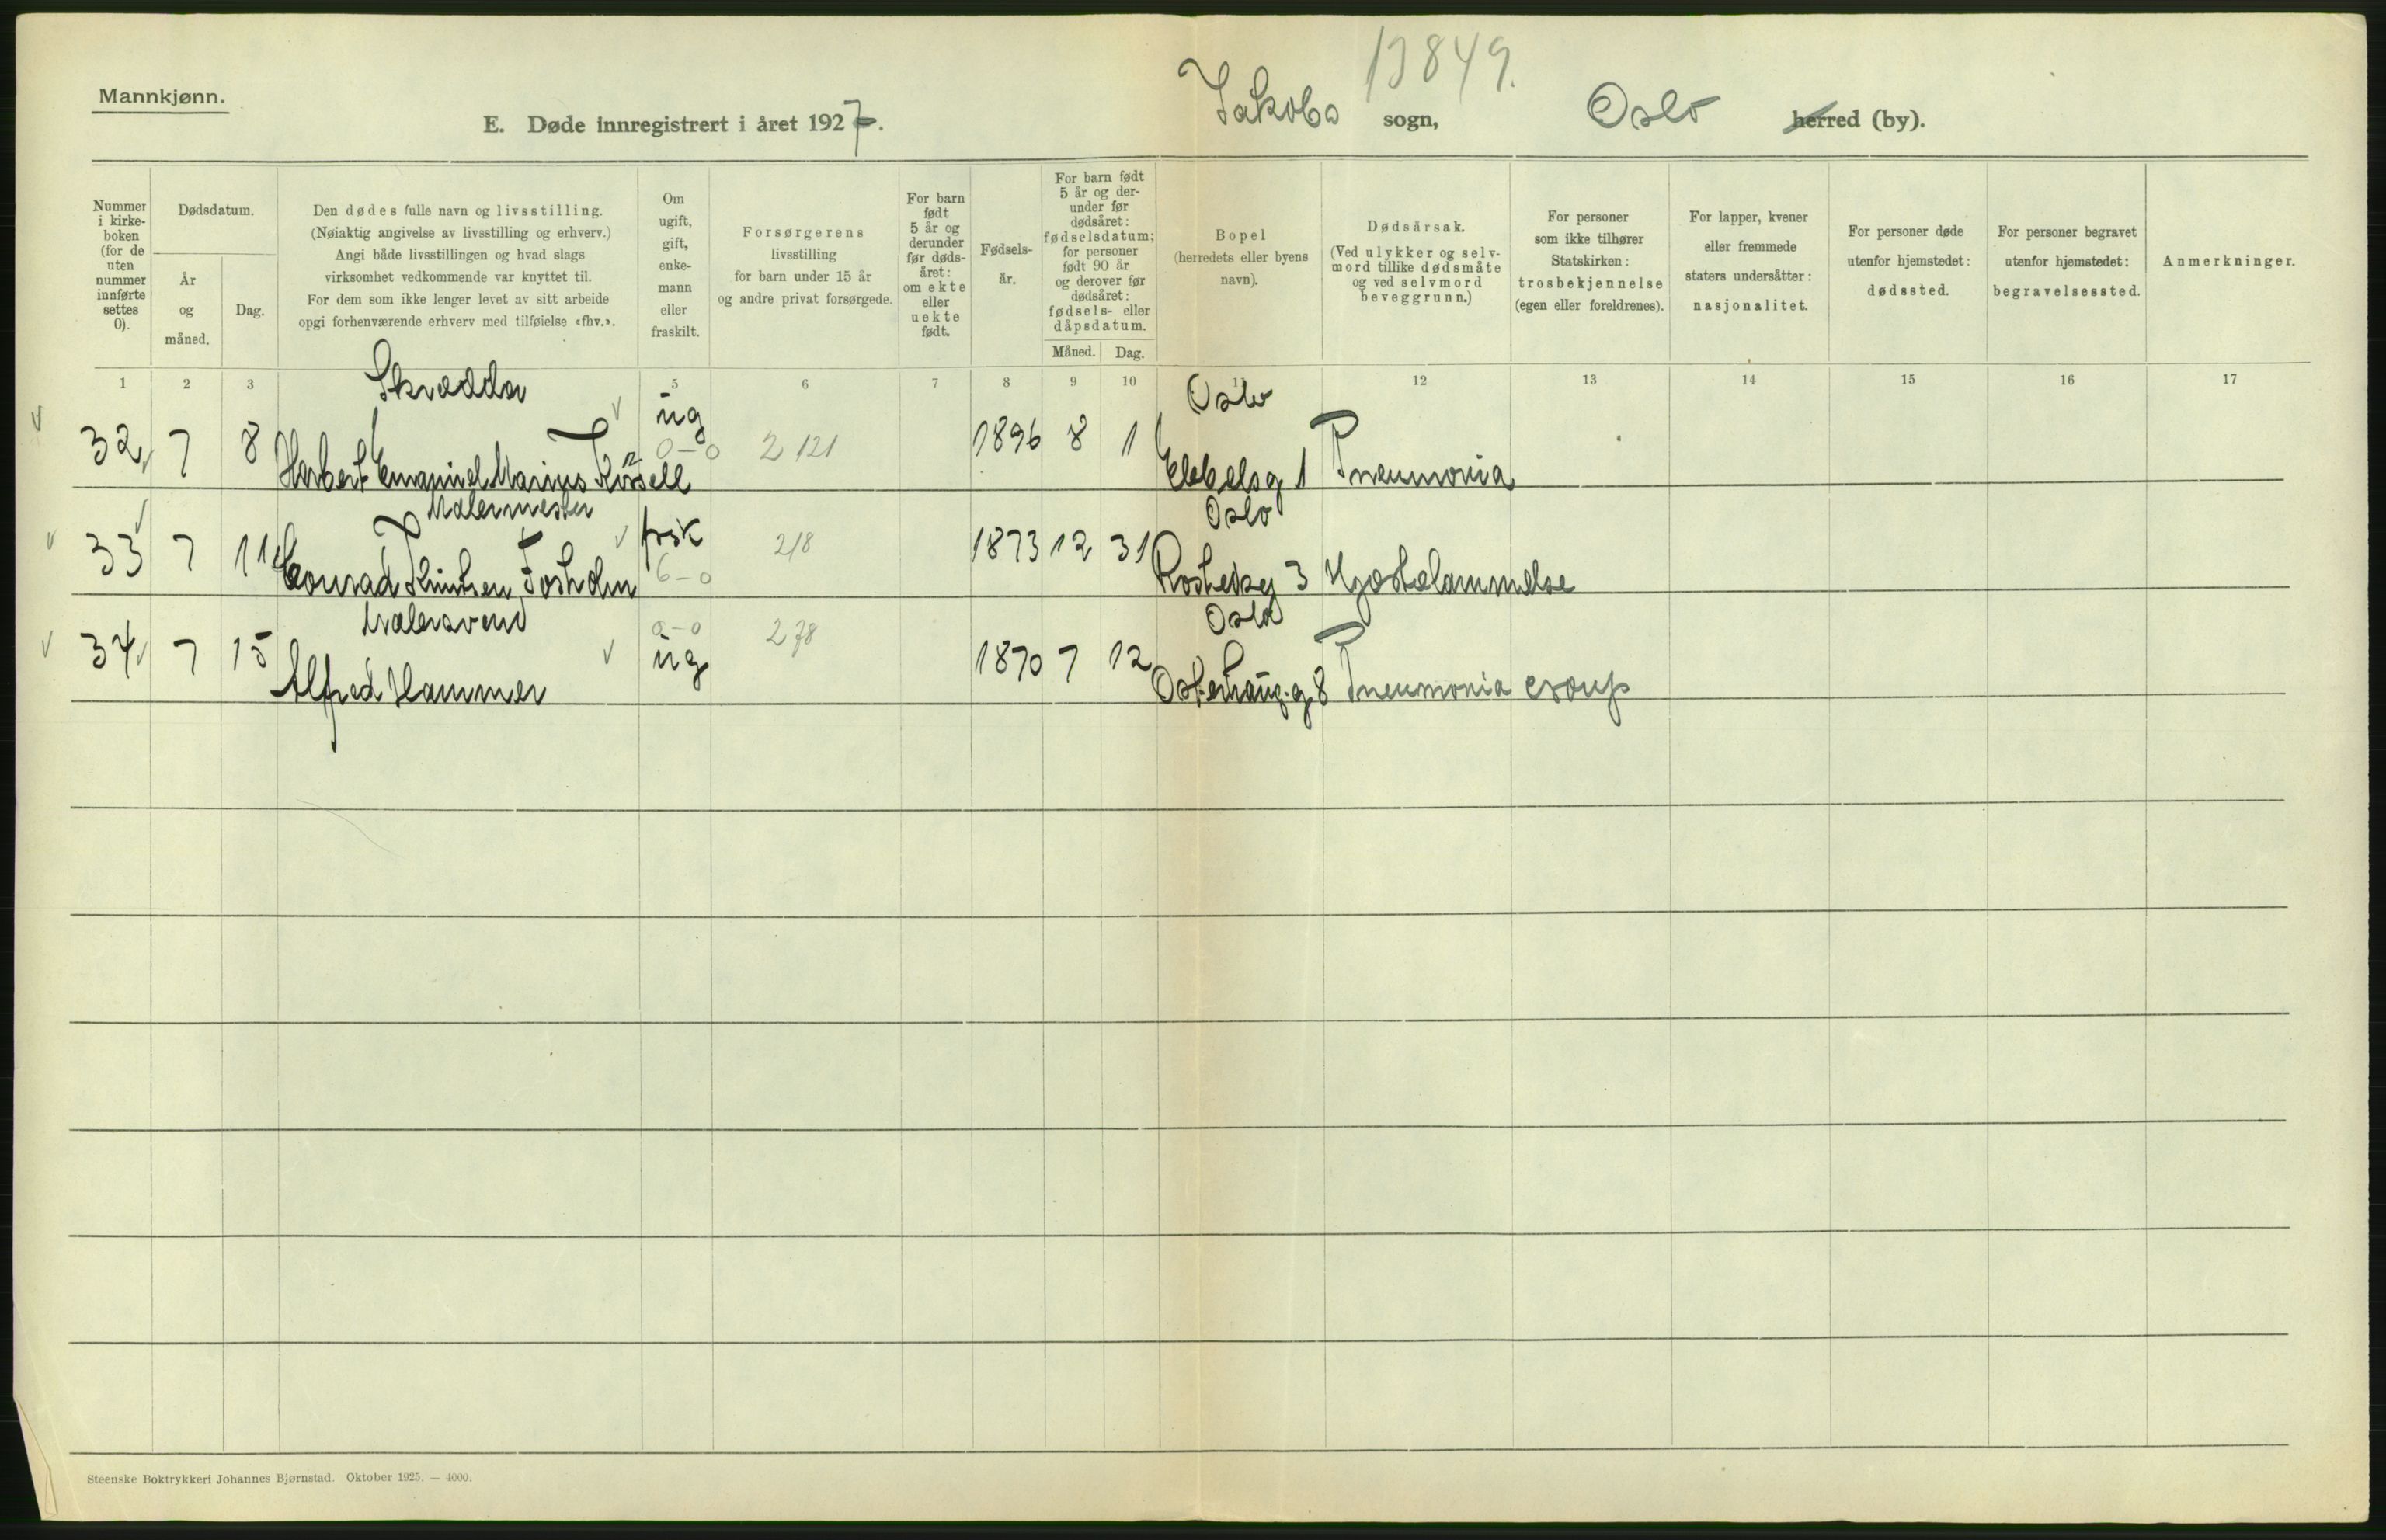 Mannkjønn.
E. Døde innregistrert i året 1927.
Jakobs sogn, Oslo herred (by).
13849.
Nummer i kirke- boken (for de uten nummer innførte settes 0).
Dødsdatum.
År og måned.
Dag.
Den dødes fulle navn og livsstilling.
(Nøiaktig angivelse av livsstilling og erhverv.)
Angi både livsstillingen og hvad slags
virksomhet vedkommende var knyttet til.
For dem som ikke lenger levet av sitt arbeide
opgi forhenværende erhverv med tilføielse «fhv.».
Om ugift, gift, enke- mann eller fraskilt.
Forsørgerens
livsstilling
for barn under 15 år
og andre privat forsørgede.
For barn født 5 år og derunder før døds- året: om ekte eller uekte født.
Fødsels- år.
For barn født 5 år og der- under før dødsåret: fødselsdatum; for personer født 90 år og derover før dødsåret: fødsels- eller dåpsdatum.
Måned. Dag.
Bopel
(herredets eller byens
navn).
Dødsårsak.
(Ved ulykker og selv-
mord tillike dødsmåte
og ved selvmord
beveggrunn.)
For personer
som ikke tilhører
Statskirken:
trosbekjennelse
(egen eller foreldrenes).
For lapper, kvener
eller fremmede
staters undersåtter:
nasjonalitet.
For personer døde
utenfor hjemstedet:
dødssted.
For personer begravet
utenfor hjemstedet:
begravelsessted.
Anmerkninger.
1 2 3 5 6 7 8 9 10 11 12 13 14 15 16 17
Skrædder Oslo
32 7 8 ug 0-0 2121 1896 8 1
Herbert Emanuel Marius Pneumonia
Malermester Oslo
33 7 11 frsk 6-0 218 1873 12 31
Conrad Knutsen 3 Hjertelammelse
Malersvend Oslo
34 7 15 0-0 ug 278 1870 7 12
Alfred Hammer Osterhaug.g. 8 Pneumonia croup
Steenske Boktrykkeri Johannes Bjørnstad. Oktober 1925. — 4000.